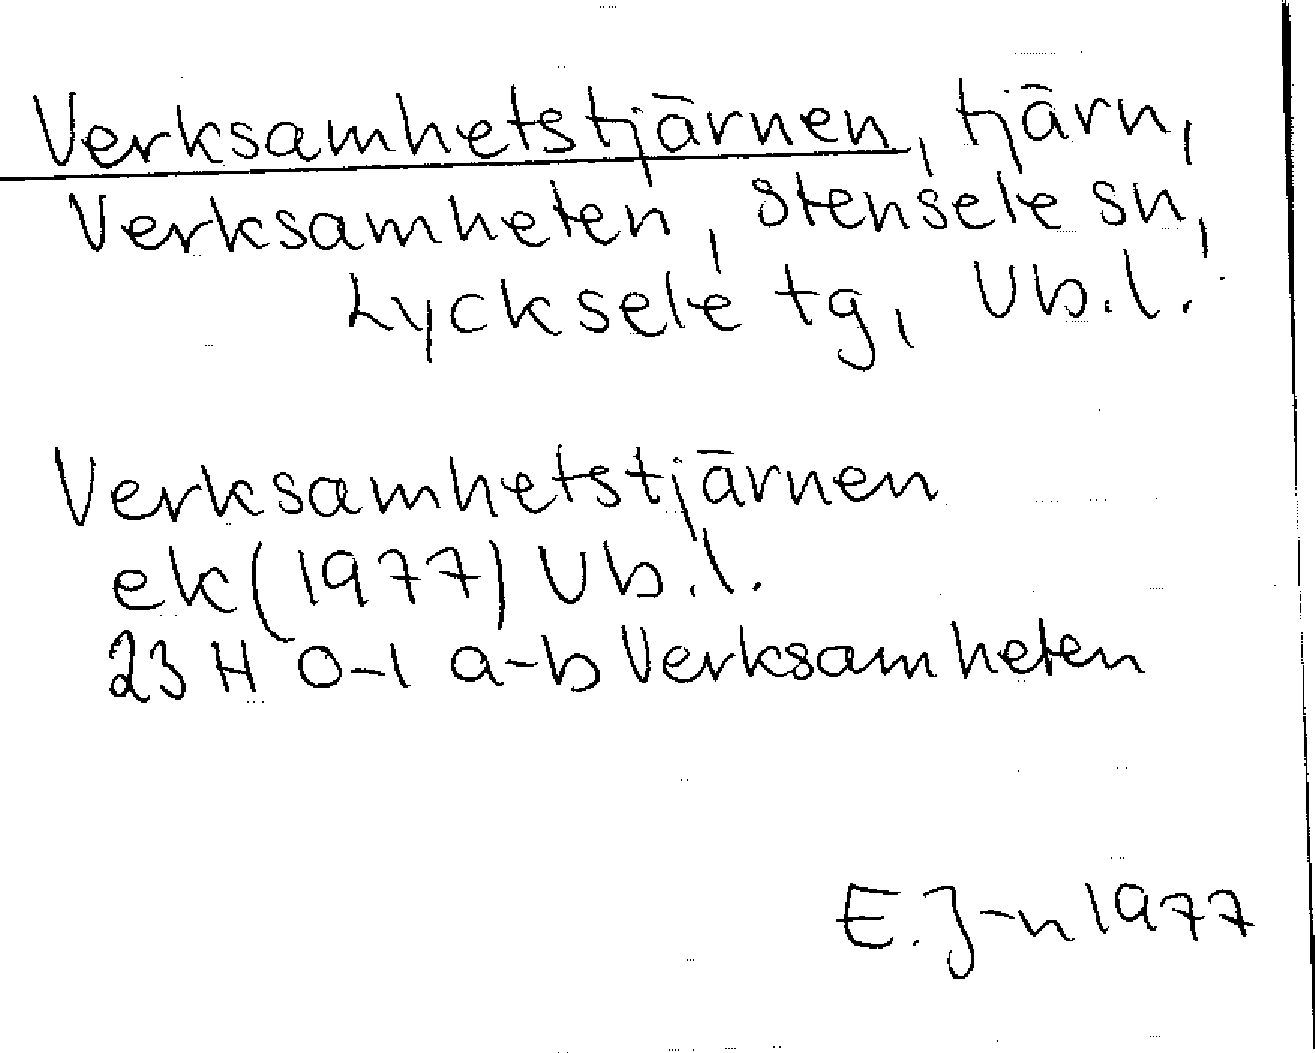 Verksamhetstjärnen, tjärn,
Verksamheten, Stensele sn,
Lycksele tg, Vb.l.
Verksamhetstjärnen
ek(1977) Vb.l.
23 H 0-1 a-b Verksamheten
E.J-n 1977